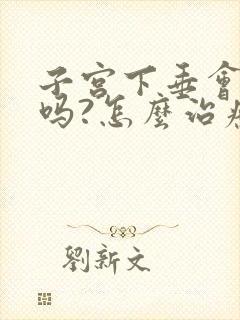 子宮下垂會
吗?怎麼治
劉新文